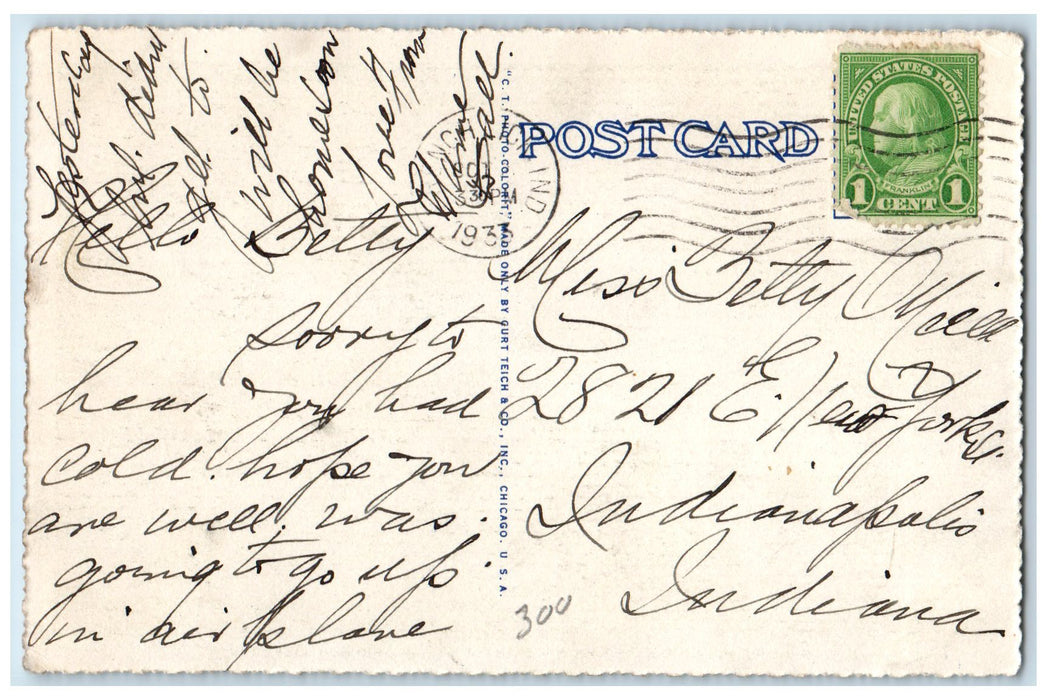 Hello Betty
Sorry to
hear you had
cold. hope you
are well. was
going to go up
in air plane
yesterday
but didn't
get to.
will be
home soon
Love from
"C. T. PHOTO-COLORIT," MADE ONLY BY CURT TEICH & CO., INC., CHICAGO, U. S. A.
POST CARD
IND
30 PM
193
UNITED STATES POSTAGE
FRANKLIN
1 CENT 1
Miss Betty
2821 E. New York St.
Indianapolis
Indiana
300